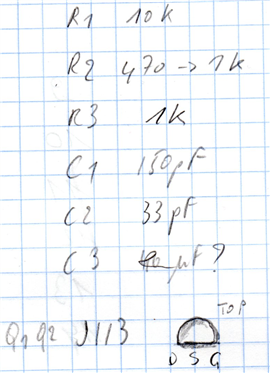 R1 10k
R2 470 → 1k
R3 1k
C1 150pF
C2 33pF
C3 µF?
Q1 Q2 J113
TOP
D S G